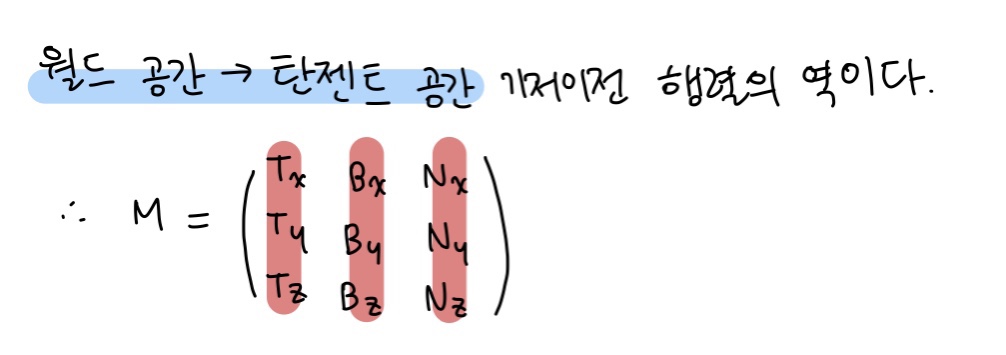 월드 공간 → 탄젠트 공간 기저이전 행렬의 역이다.
∴ M = ( Tx Bx Nx
Ty By Ny
Tz Bz Nz )